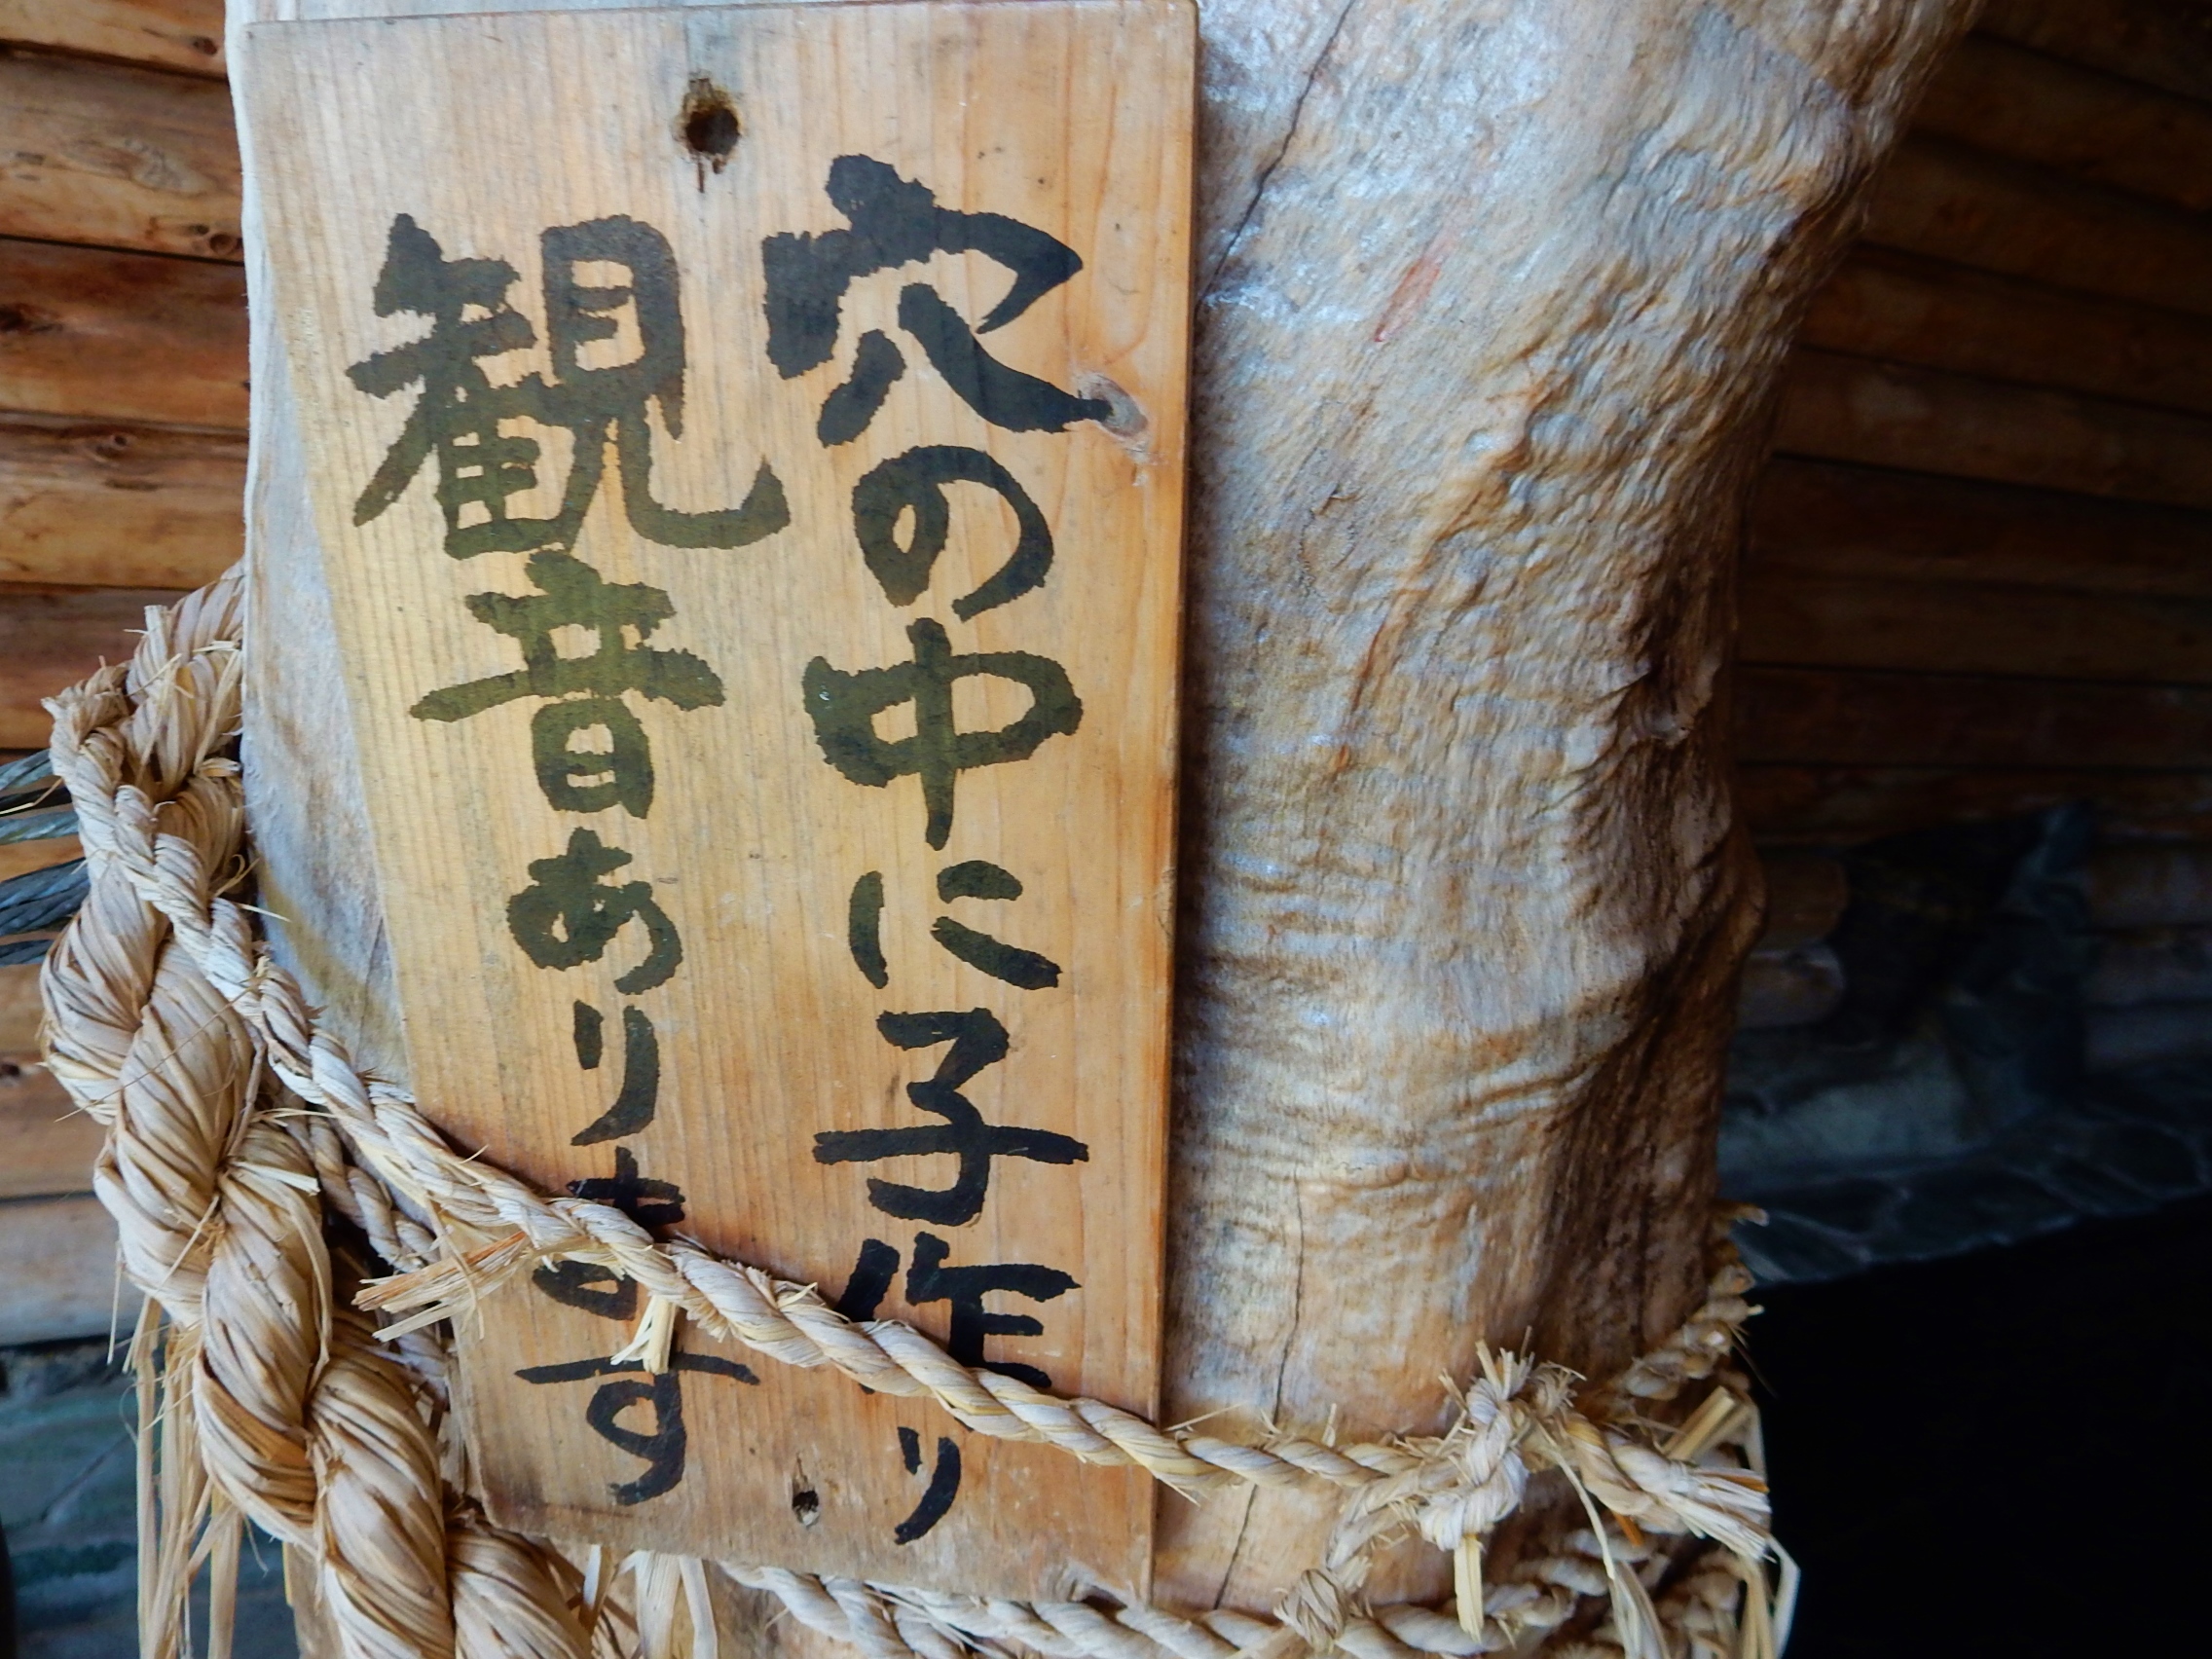 穴の中に子作り
観音あります